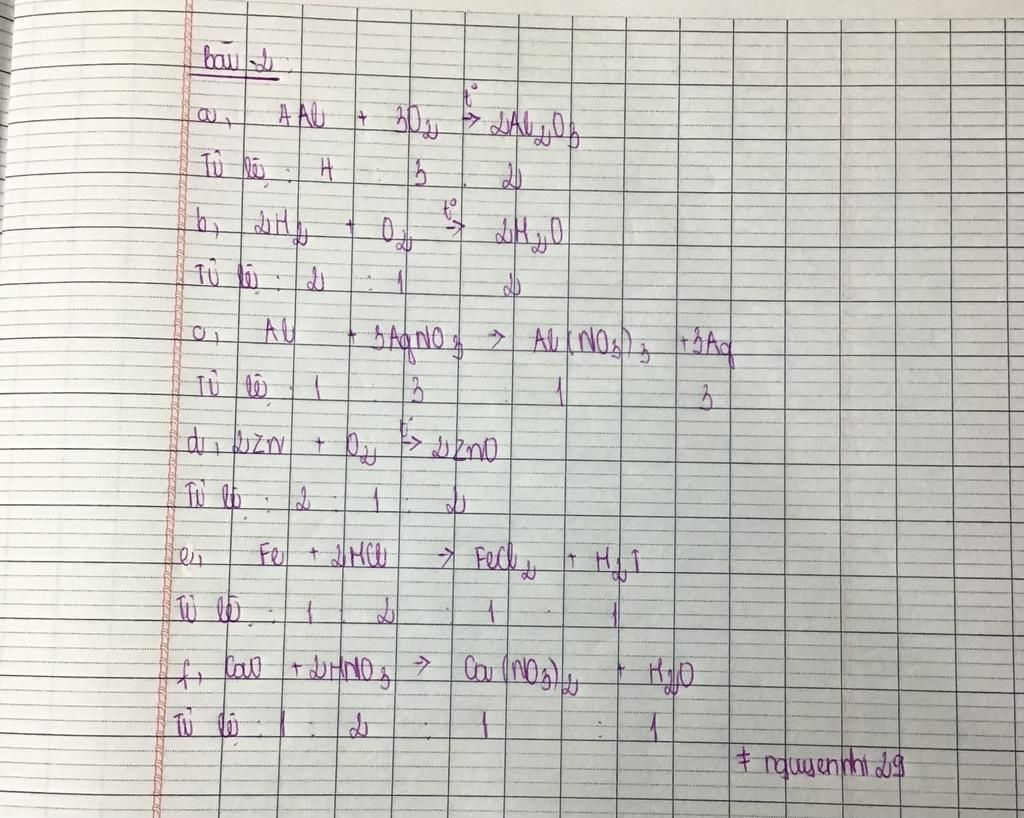 Bài 2
a, 4Al + 3O₂ →(t°) 2Al₂O₃
Tỉ lệ : 4 3 : 2
b, 2H₂ + O₂ →(t°) 2H₂O
Tỉ lệ : 2 : 1 2
c, Al + 3AgNO₃ → Al(NO₃)₃ + 3Ag
Tỉ lệ : 1 3 1 3
d, 2Zn + O₂ →(t°) 2ZnO
Tỉ lệ : 2 : 1 : 2
e, Fe + 2HCl → FeCl₂ + H₂↑
Tỉ lệ : 1 : 2 : 1 : 1
f, CaO + 2HNO₃ → Ca(NO₃)₂ + H₂O
Tỉ lệ : 1 : 2 : 1 : 1
# nguyennhi29